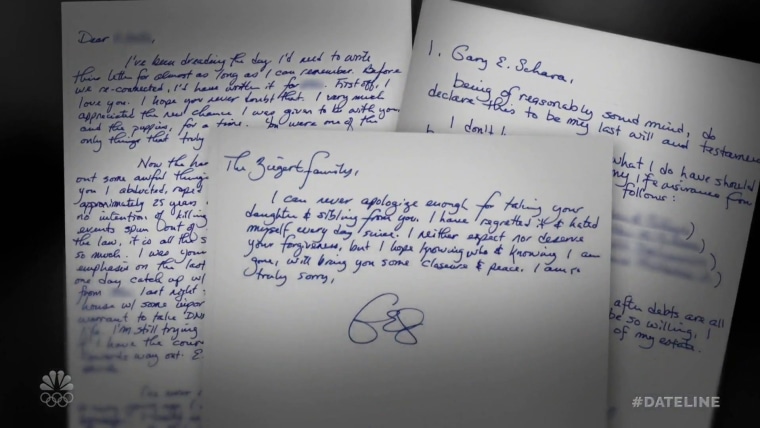 Dear
I've been dreading the day I'd need to write
this letter for almost as long as I can remember. Before
we re-connected, I'd have written it for First off, I
love you. I hope you never doubt that. I very much
appreciated the new chance I was given to be with you
and the puppies, for a time. were one of the
only things that truly
Now the ha
out some awful things
you I abducted, rape
approximately 25 years
no intention of killing
events spun out of
the law, it is all the s
so much. I was your
emphasis on the last
one day catch up w/
from last night
house w/ some
warrant to take DN
I'm still trying
I have the cour
towards way out. E
I've never
The Ziegert family,
I can never apologize enough for taking your
daughter & sibling from you. I have regretted it & hated
myself every day since. I neither expect nor deserve
your forgiveness, but I hope knowing who & knowing I am
gone, will bring you some closure & peace. I am so
truly sorry,
I, Gary E. Schara,
being of reasonably sound mind, do
declare this to be my last will and testament
I don't h
what I do have should
my life insurance from
follows:
after debts are all
be so willing, I
of my estate.
NBC
#DATELINE